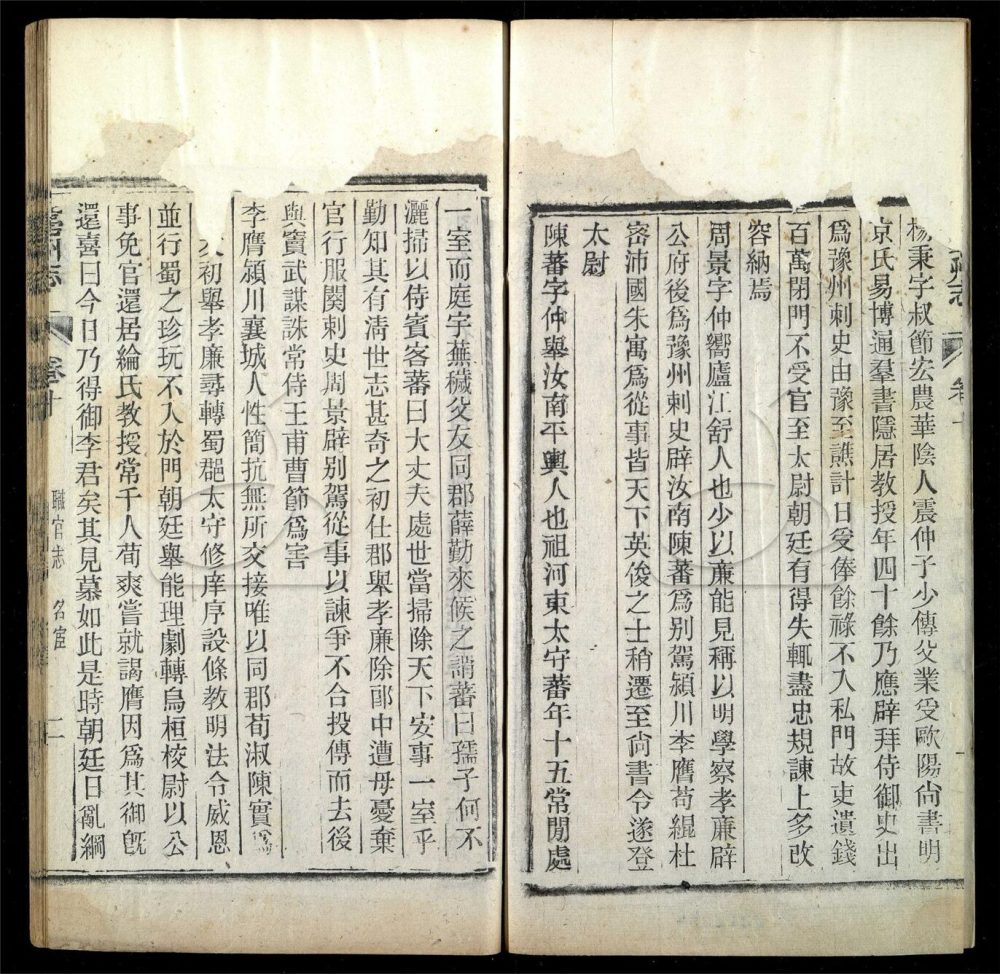 志
卷十
楊秉字叔節宏農華陰人震仲子少傳父業受歐陽尙書明
京氏易博通羣書隱居教授年四十餘乃應辟拜侍御史出
爲豫州刺史由豫至譙計日受俸餘祿不入私門故吏遺錢
百萬閉門不受官至太尉朝廷有得失輒盡忠規諫上多改
容納焉
周景字仲嚮廬江舒人也少以廉能見稱以明學察孝廉辟
公府後爲豫州刺史辟汝南陳蕃爲别駕潁川李膺荀緄杜
密沛國朱寓爲從事皆天下英俊之士稍遷至尙書令遂登
太尉
陳蕃字仲舉汝南平輿人也祖河東太守蕃年十五常閒處
一室而庭宇蕪穢父友同郡薛勤來候之謂蕃曰孺子何不
灑掃以侍賓客蕃曰大丈夫處世當掃除天下安事一室乎
勤知其有淸世志甚奇之初仕郡舉孝廉除郎中遭母憂棄
官行服闋刺史周景辟别駕從事以諫爭不合投傳而去後
與竇武謀誅常侍王甫曹節爲害
李膺潁川襄城人性簡抗無所交接唯以同郡荀淑陳實爲
友初舉孝廉尋轉蜀郡太守修庠序設條教明法令威恩
並行蜀之珍玩不入於門朝廷舉能理劇轉烏桓校尉以公
事免官還居綸氏教授常千人荀爽嘗就謁膺因爲其御旣
還喜曰今日乃得御李君矣其見慕如此是時朝廷日亂綱
亳州志
卷十
職官志
名宦
二